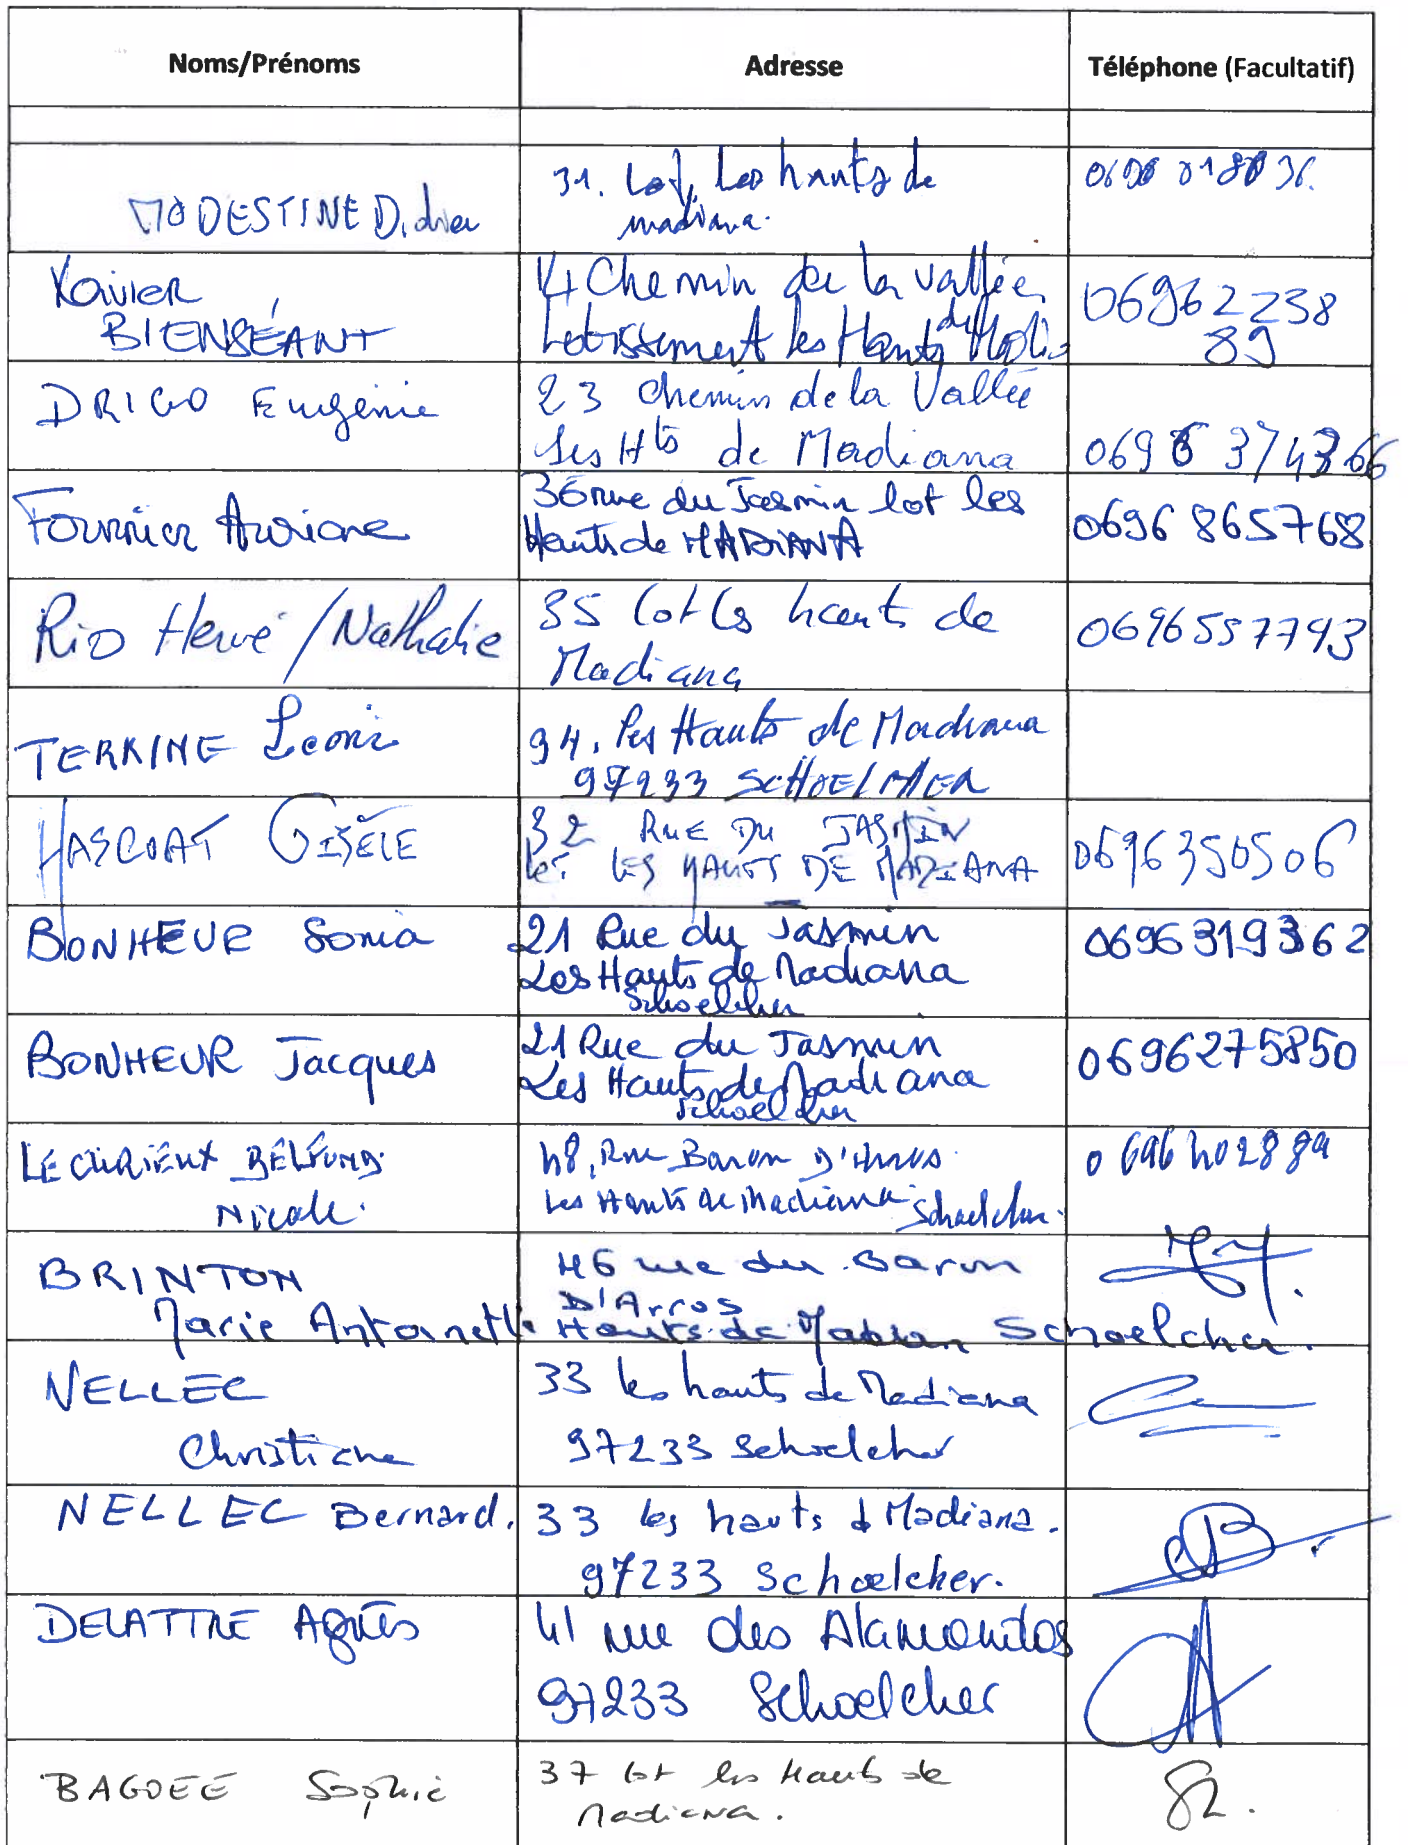 Noms/Prénoms Adresse Téléphone (Facultatif)
MODESTINE Didier 31. Lot. Les hauts de
madiana.
Xavier
BIENSÉANT 14 Chemin de la vallée
Lotissement les Hauts de Madi 06962238
89
DRIGO Eugénie 23 chemin de la Vallée
Les Hts de Madiana
Fournier Auriane 36 rue du Jasmin lot les
Hauts de MADIANA 0696 865768
Rio Hervé / Nathalie 35 lot les hauts de
Madiana 0696557743
TERRINE Leoni 94, les Hauts de Madiana
97233 SCHOELCHER
HASCOAT GISÈLE 32 RUE DU JASMIN
lot LES HAUTS DE MADIANA 0696350506
BONHEUR Sonia 21 Rue du Jasmin
Les Hauts de Madiana
Schoelcher 0696319362
BONHEUR Jacques 21 Rue du Jasmin
Les Hauts de Madiana
Schoelcher 0696275850
LECURIEUX BELFOND
Nicole. 48, Rue Baron D'Arros
Les Hauts de Madiana Schoelcher.
BRINTON
Marie Antoinette 46 rue du Baron
D'Arros
Hauts de Madiana Schoelcher.
NELLEC
Christiane 33 les hauts de Madiana
97233 Schoelcher
NELLEC Bernard. 33 les hauts d Madiana.
97233 Schoelcher.
DELATTRE Agnès 41 rue des Alamandas
97233 Schoelcher
BAGOEE Sophie 37 lot les Hauts de
Madiana.